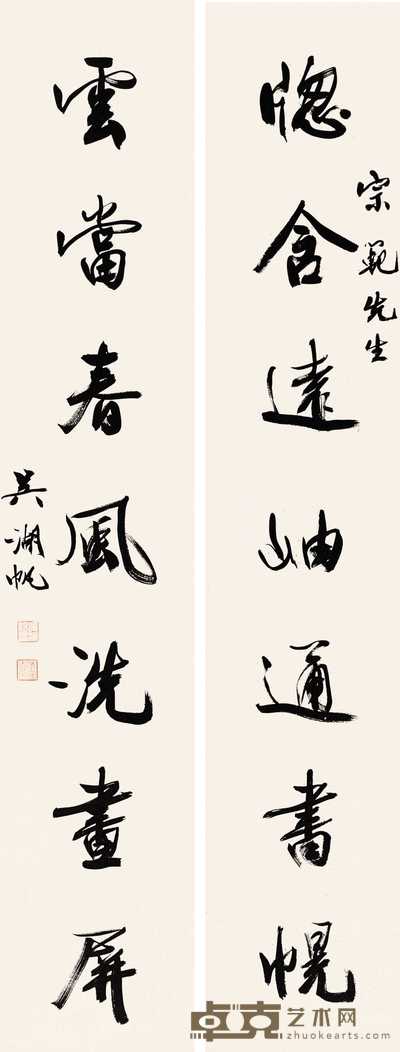 宗範先生
牕含遠岫通書幌
雲當春風洗畫屏
吳湖帆
卓克艺术网
zhuokearts.com